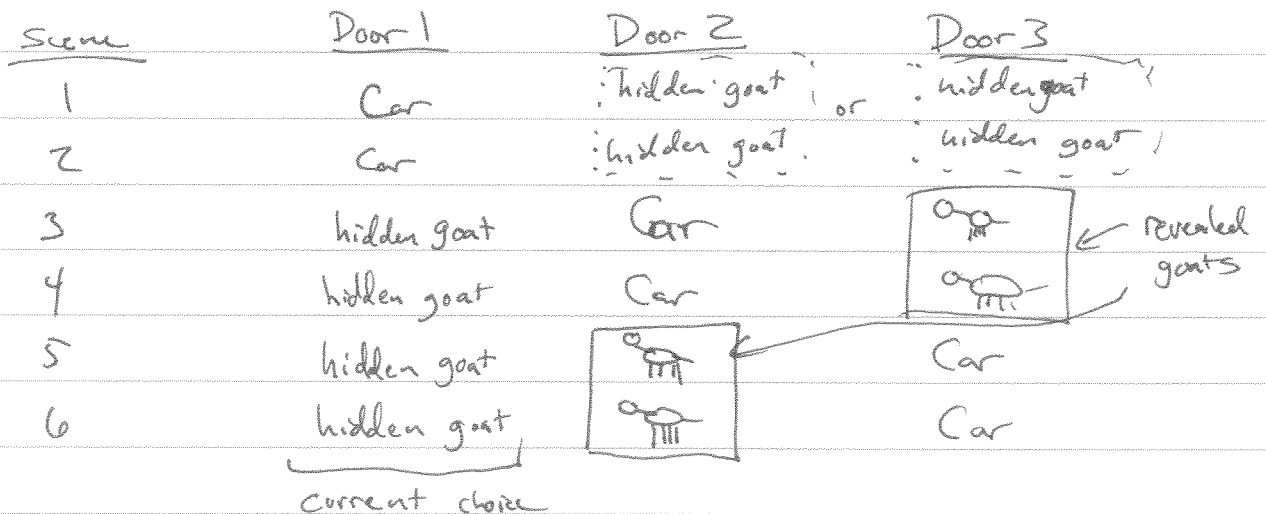 Scene Door 1 Door 2 Door 3
1 Car hidden goat or hidden goat
2 Car hidden goat hidden goat
3 hidden goat Car revealed
4 hidden goat Car goats
5 hidden goat Car
6 hidden goat Car
current choice